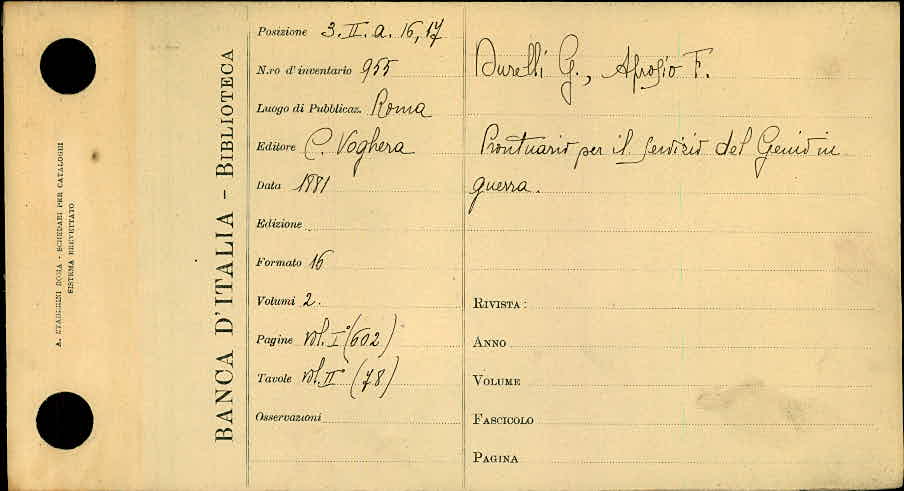 A. STADERINI ROMA - SCHEDARI PER CATALOGHI
SISTEMA BREVETTATO
BANCA D'ITALIA - BIBLIOTECA
Posizione 3. II. a. 16, 17
N.ro d'inventario 955
Luogo di Pubblicaz. Roma
Editore C. Voghera
Data 1881
Edizione
Formato 16
Volumi 2.
Pagine vol. I° (602)
Tavole vol. II° (78)
Osservazioni
Durelli G., F.
Prontuario per il servizio del Genio in
guerra.
RIVISTA:
ANNO
VOLUME
FASCICOLO
PAGINA